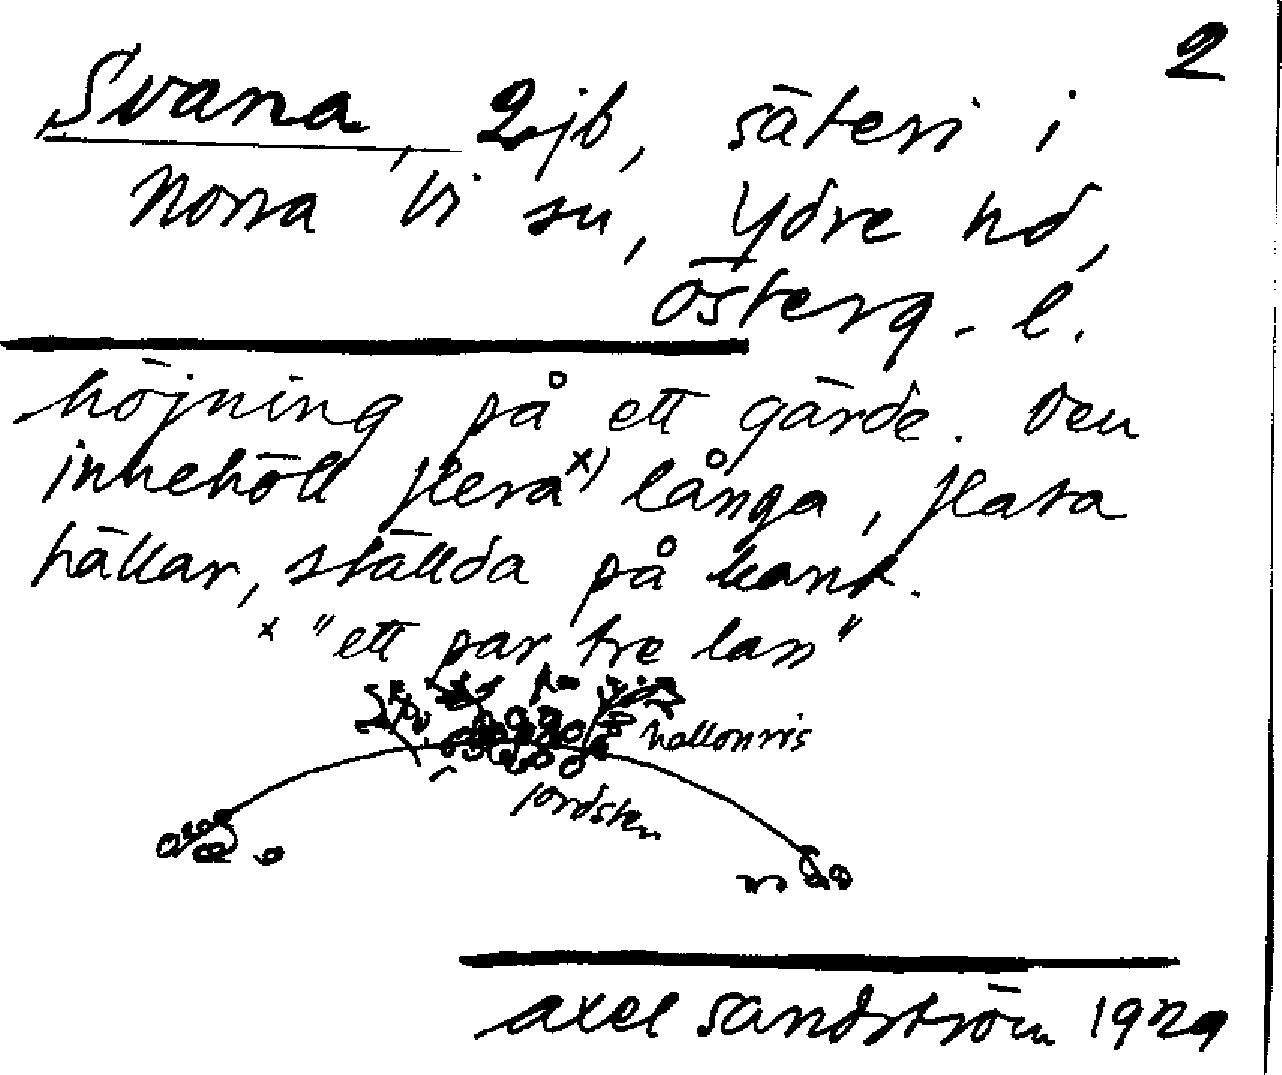 2
Svana, 2jb, säteri i
Norra Vi sn, Ydre hd,
Österg. l.
höjning på ett gärde. Den
innehöll flera x) långa, flata
hällar, ställda på kant.
x "ett par tre lass"
hallonris
jordsten
Axel Sandström 1929